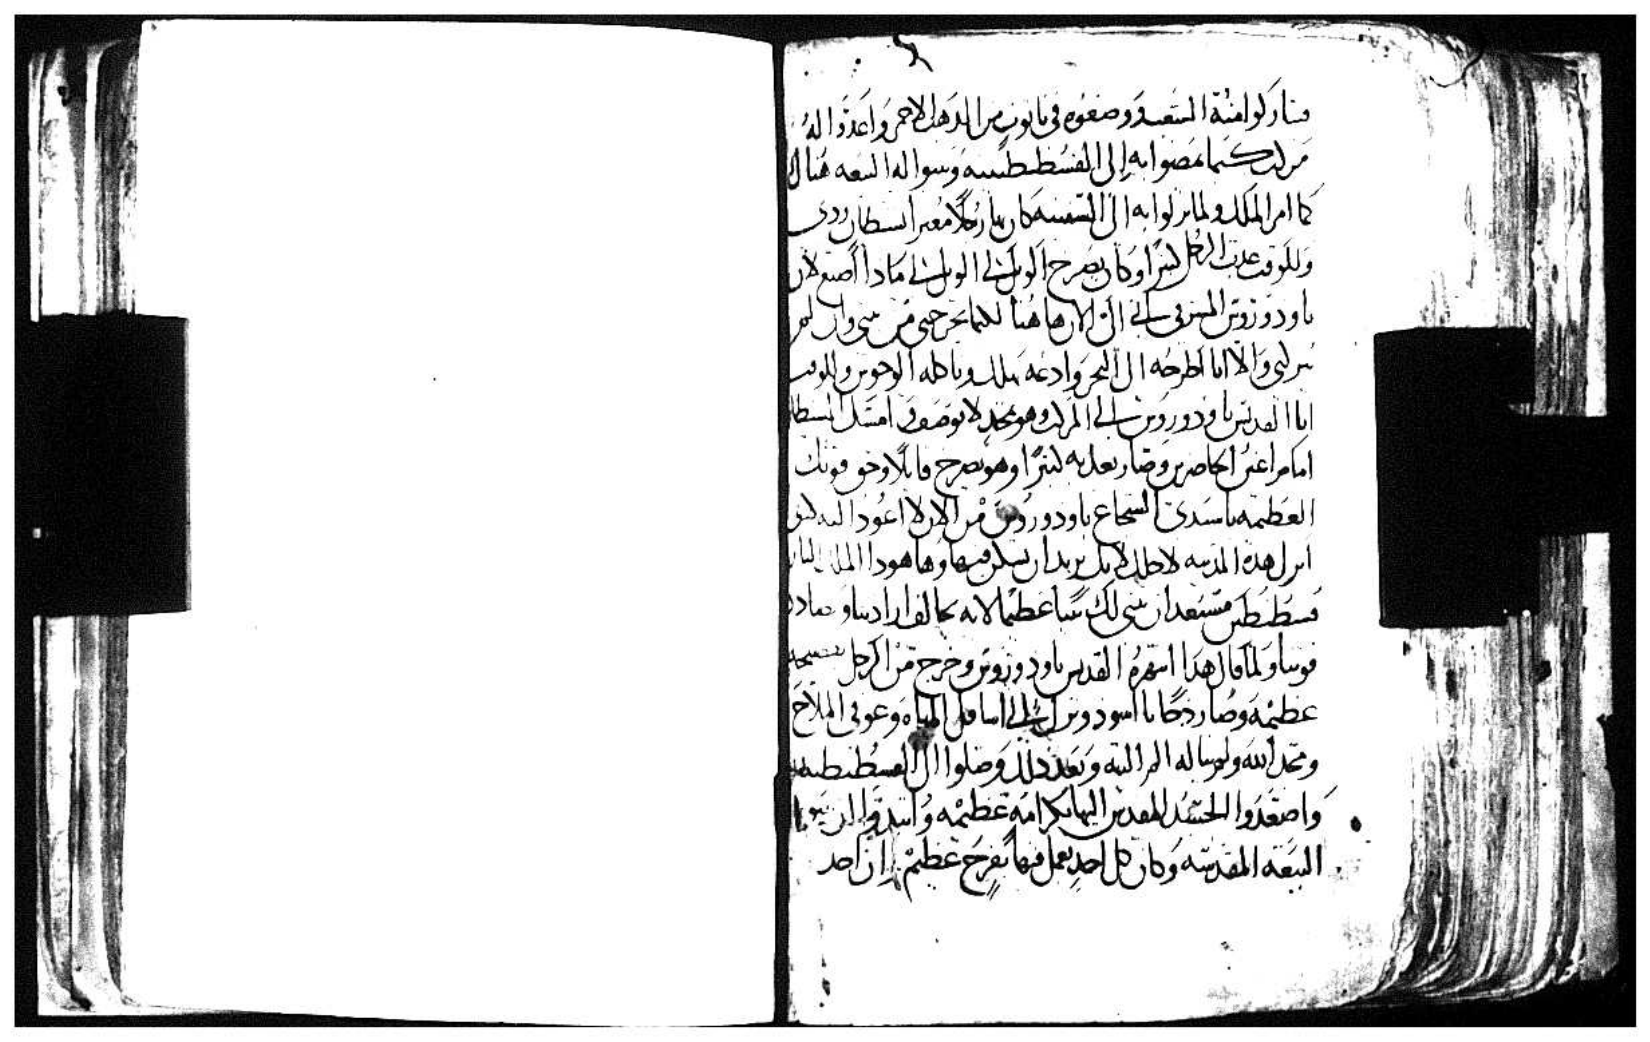 فتباركوا منه الشعب ووضعوه في تابوت من الذهب الاحمر واعدوا له
مركب كيما يمضوا به الى القسطنطينيه ويبنوا له البيعه هناك
كما امر الملك ولما نزلوا به الى السفينه كان بها رجلا معتر بشيطان ردى
وللوقت عذب الرجل كثيرا وكان يصرخ الويل لي الويل لي ماذا اصنع لان
تاودوروس المشرقي الى الان هاهنا لكيما يخرجني من مسكني وان لم
يتركني والا انا اطرحه الى البحر وادعه يهلك وياكله الوحوش وللوقت
اتا القديس تاودوروس الى المركب وهو بمجد لا يوصف وامسك الشيطان
امام اعين الحاضرين وصار يعذبه كثيرا وهو يصرخ قايلا وحق قوتك
العظيمه يا سيدي الشجاع تاودوروس من الان لا اعود اليه لكن
اترك هذه المدينه لاجلك لانك تريد ان تسكن فيها وها هوذا الملك البار
قسطنطين مستعد ان يبني لك بيتا عظيما لانه
ولما قال هذا انتهره القديس تاودوروس وخرج من الرجل
عظيمه وصار دخانا اسود ونزل الى اسافل المياه وعوفي الملاح
ومجد الله ولم يناله الم البته وبعد ذلك وصلوا الى القسطنطينيه
واصعدوا الجسد المقدس اليها بكرامه عظيمه وابتدوا ان يبنوا
البيعه المقدسه وكان كل احد يعمل فيها بفرح عظيم ان احد